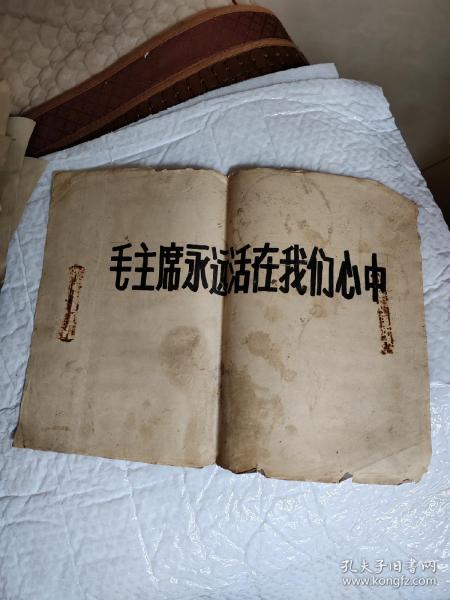 毛主席永远活在我们心中
孔夫子旧书网
www.kongfz.com